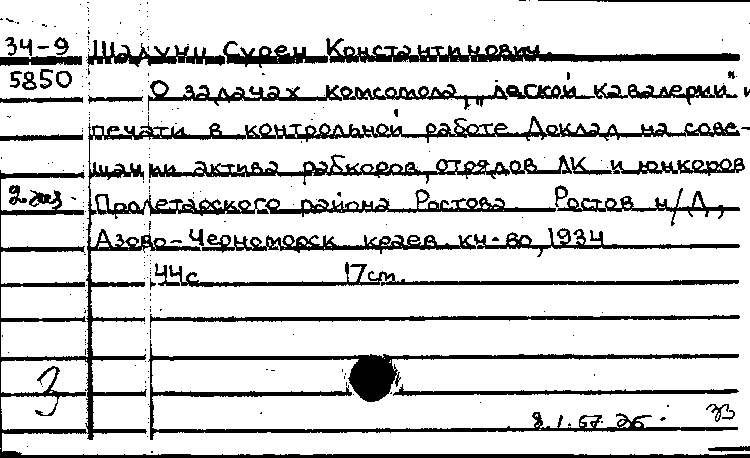 34-9 Шалуни Сурен Константинович.
5850
О задачах комсомола, „легкой кавалерии" и
печати в контрольной работе Доклад на сове-
щании актива рабкоров, отрядов ЛК и юнкоров
2 экз. Пролетарского района Ростова Ростов н/Д,
Азово-Черноморск краев. кн-во, 1934
44с 17см.
З
8.1.67